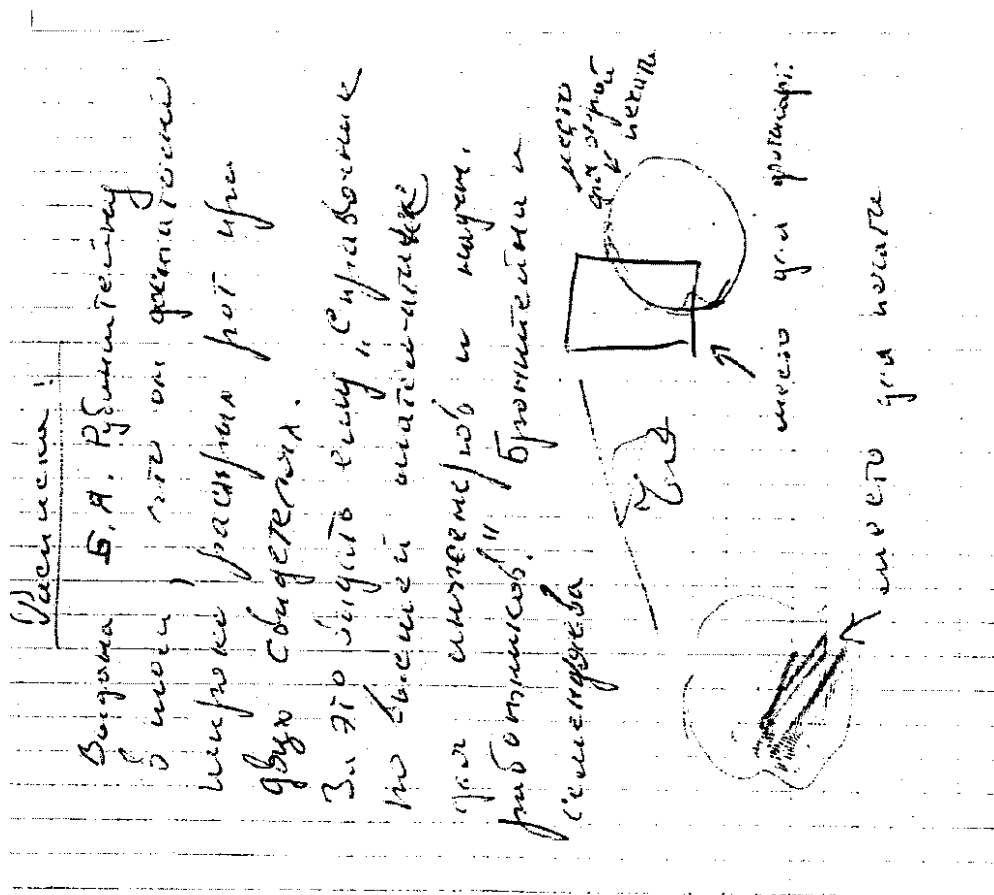 Расписка!
Выдана Б.А. Рубинштейну
в том, что он
широко раскрыл рот при
двух свидетелях.
За это выдать ему „Справочник
по высшей математике
для инженеров и научн.
работников." Бронштейна и
Семендяева
место
для второй
печати
место для фотокарт.
место для печати